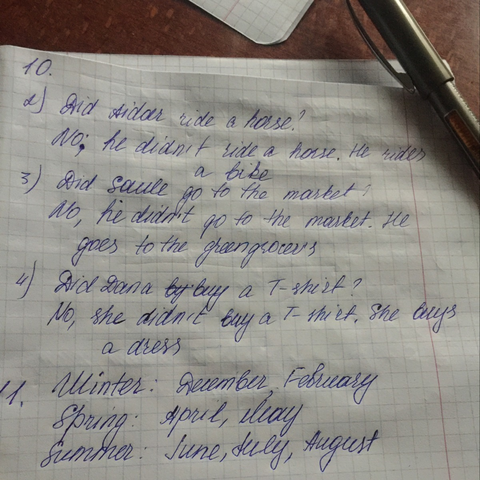 10.
2) Did Aidar ride a horse?
No, he didn't ride a horse. He rides
a bike
3) Did Saule go to the market?
No, he didn't go to the market. He
goes to the greengrocers
4) Did Dana buy a T-shirt?
No, she didn't buy a T-shirt. She buys
a dress
11. Winter: December, February
Spring: April, May
Summer: June, July, August